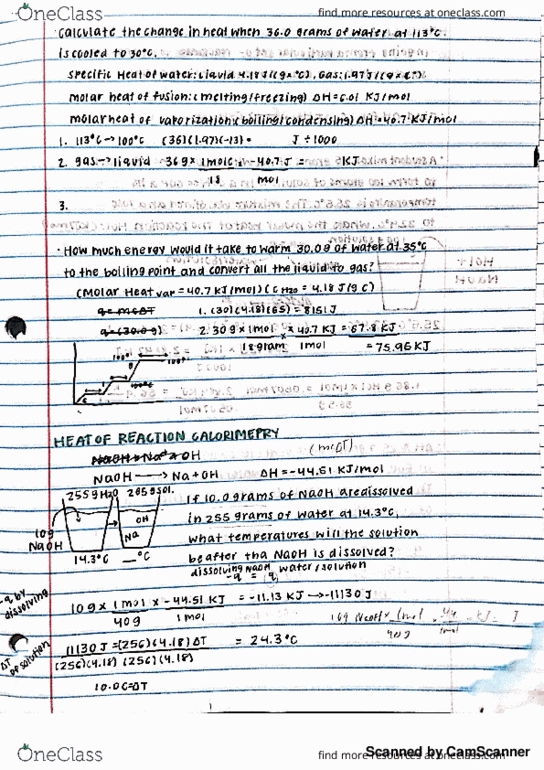 OneClass
find more resources at oneclass.com
· Calculate the change in heat when 36.0 grams of water at 113°C
is cooled to 30°C.
specific Heat of water: Liquid 4.18 J/(g×°C), Gas: 1.97 J/(g×°C)
molar heat of fusion: (melting/freezing) ΔH = 6.01 KJ/mol
molar heat of vaporization: (boiling/condensing) ΔH = 40.7 KJ/mol
1. 113°C → 100°C (36)(1.97)(-13) = J ÷ 1000
2. gas → liquid 36g × 1 mole × -40.7 J = KJ
18 mol
3.
· How much energy would it take to warm 30.0g of water at 35°C
to the boiling point and convert all the liquid to gas?
(Molar Heat var = 40.7 KJ/mol) (C H2O = 4.18 J/g C)
q = mcΔT 1. (30)(4.18)(65) = 8151 J
q = (30.0g) 2. 30g × 1mol × 40.7 KJ = 67.8 KJ
18 gram 1mol = 75.95 KJ
HEAT OF REACTION CALORIMEPRY
(mcΔT)
NaOH → Na + OH ΔH = -44.51 KJ/mol
255g H2O 265g sol.
If 10.0 grams of NaOH are dissolved
OH
in 255 grams of water at 14.3°C,
10g
NaOH
Na
what temperatures will the solution
14.3°C __°C
be after tha NaOH is dissolved?
dissolving NaOH water/solution
-q = q
-q by
dissolving
10g × 1 mol × -44.51 KJ = -11.13 KJ → -11130 J
40g 1 mol
ΔT
of solution
11130 J = (256)(4.18) ΔT = 24.3°C
(256)(4.18) (256)(4.18)
10.0C = ΔT
OneClass
find more resources at oneclass.com
Scanned by CamScanner